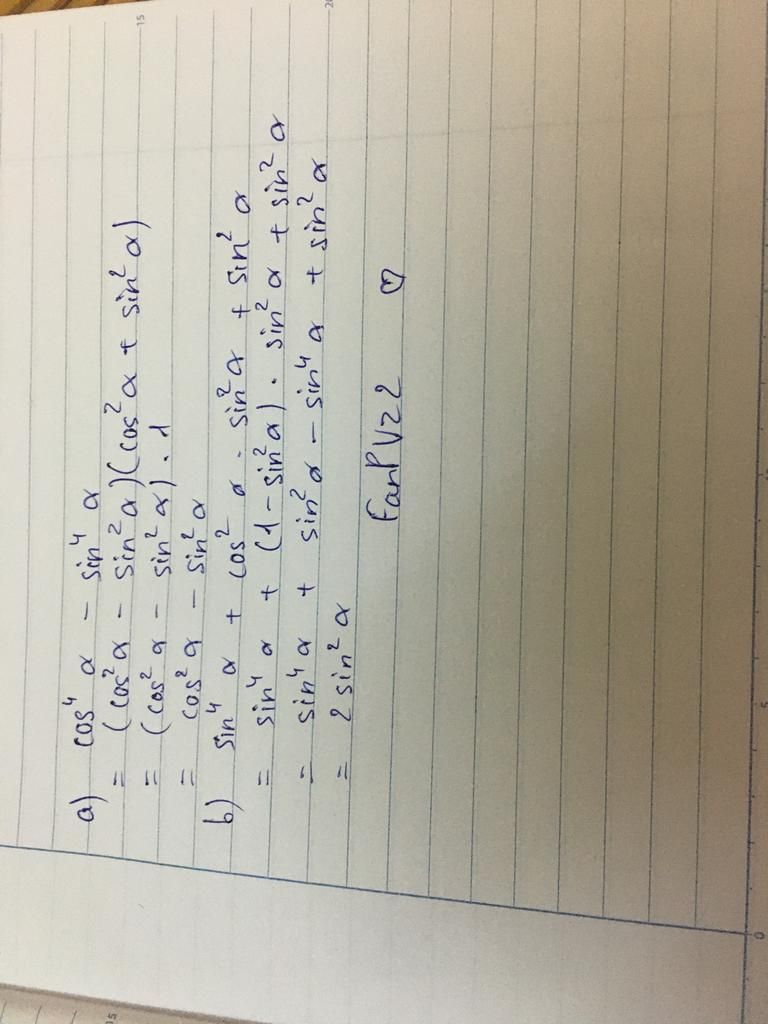 a) cos⁴ α - sin⁴ α
= (cos² α - sin² α)(cos² α + sin² α)
= (cos² α - sin² α) . 1
= cos² α - sin² α
b) sin⁴ α + cos² α . sin² α + sin² α
= sin⁴ α + (1 - sin² α) . sin² α + sin² α
= sin⁴ α + sin² α - sin⁴ α + sin² α
= 2 sin² α
FanPVZ2 ♡
15
20
5
0
15